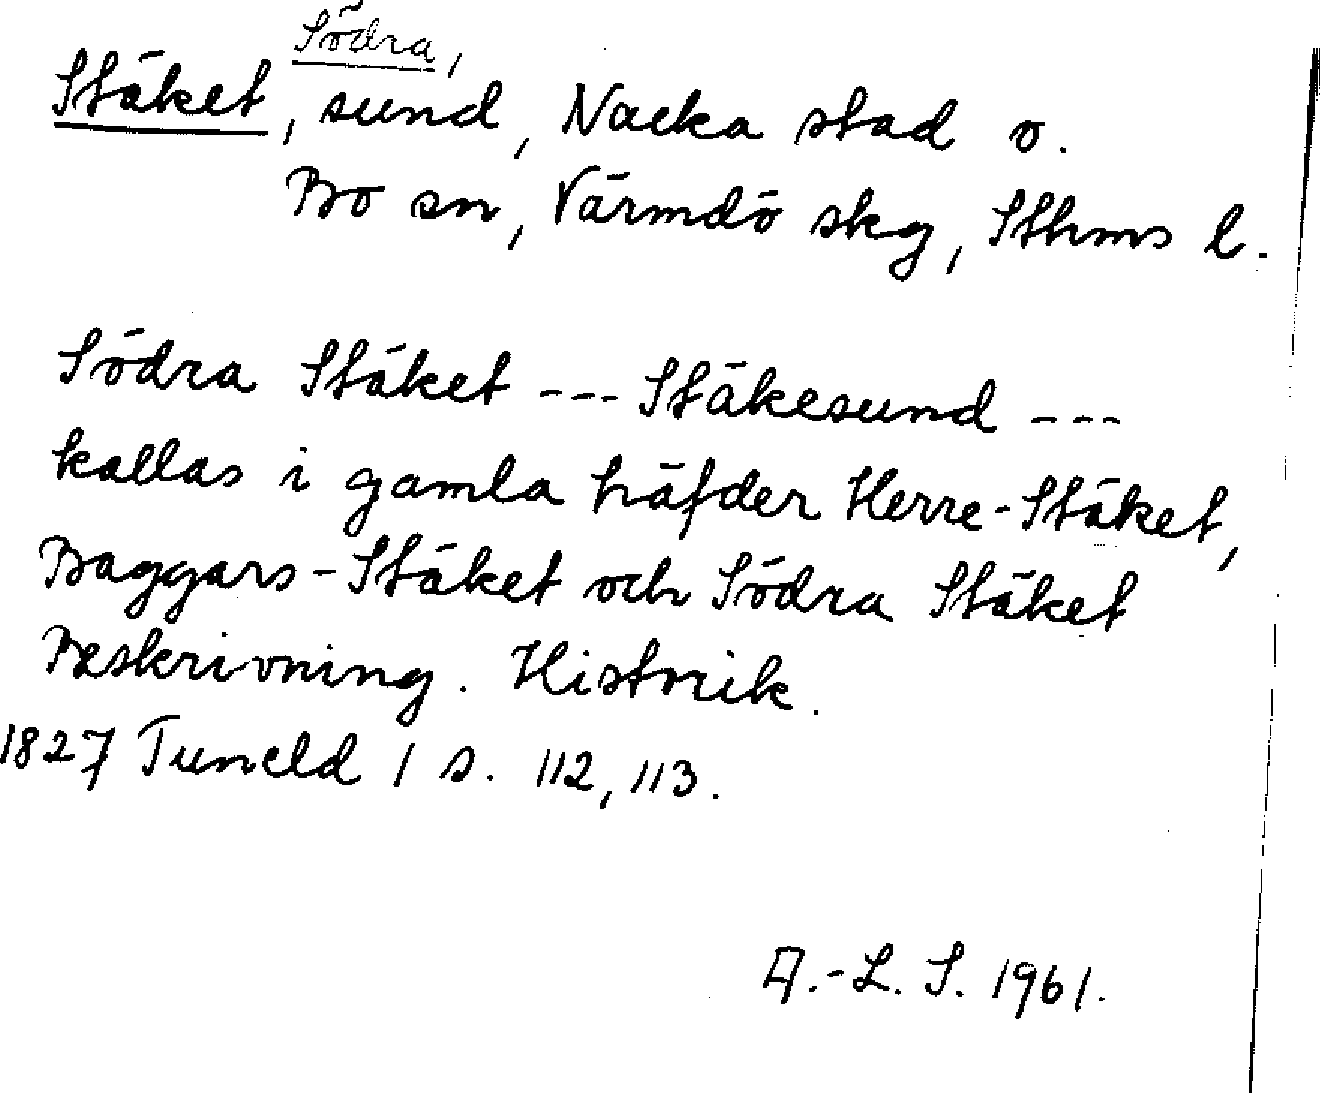 Södra,
Stäket, sund, Nacka stad o.
Bo sn, Värmdö skg, Sthms l.
Södra Stäket --- Stäkesund ---
kallas i gamla häfder Herre-Stäket,
Baggars-Stäket och Södra Stäket
Beskrivning. Historik.
1827 Tuneld 1 s. 112, 113.
A.-L. S. 1961.